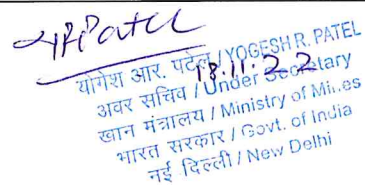 YRPatel
योगेश आर. पटेल / YOGESH R. PATEL
18.11.22
अवर सचिव / Under Secretary
खान मंत्रालय / Ministry of Mines
भारत सरकार / Govt. of India
नई दिल्ली / New Delhi